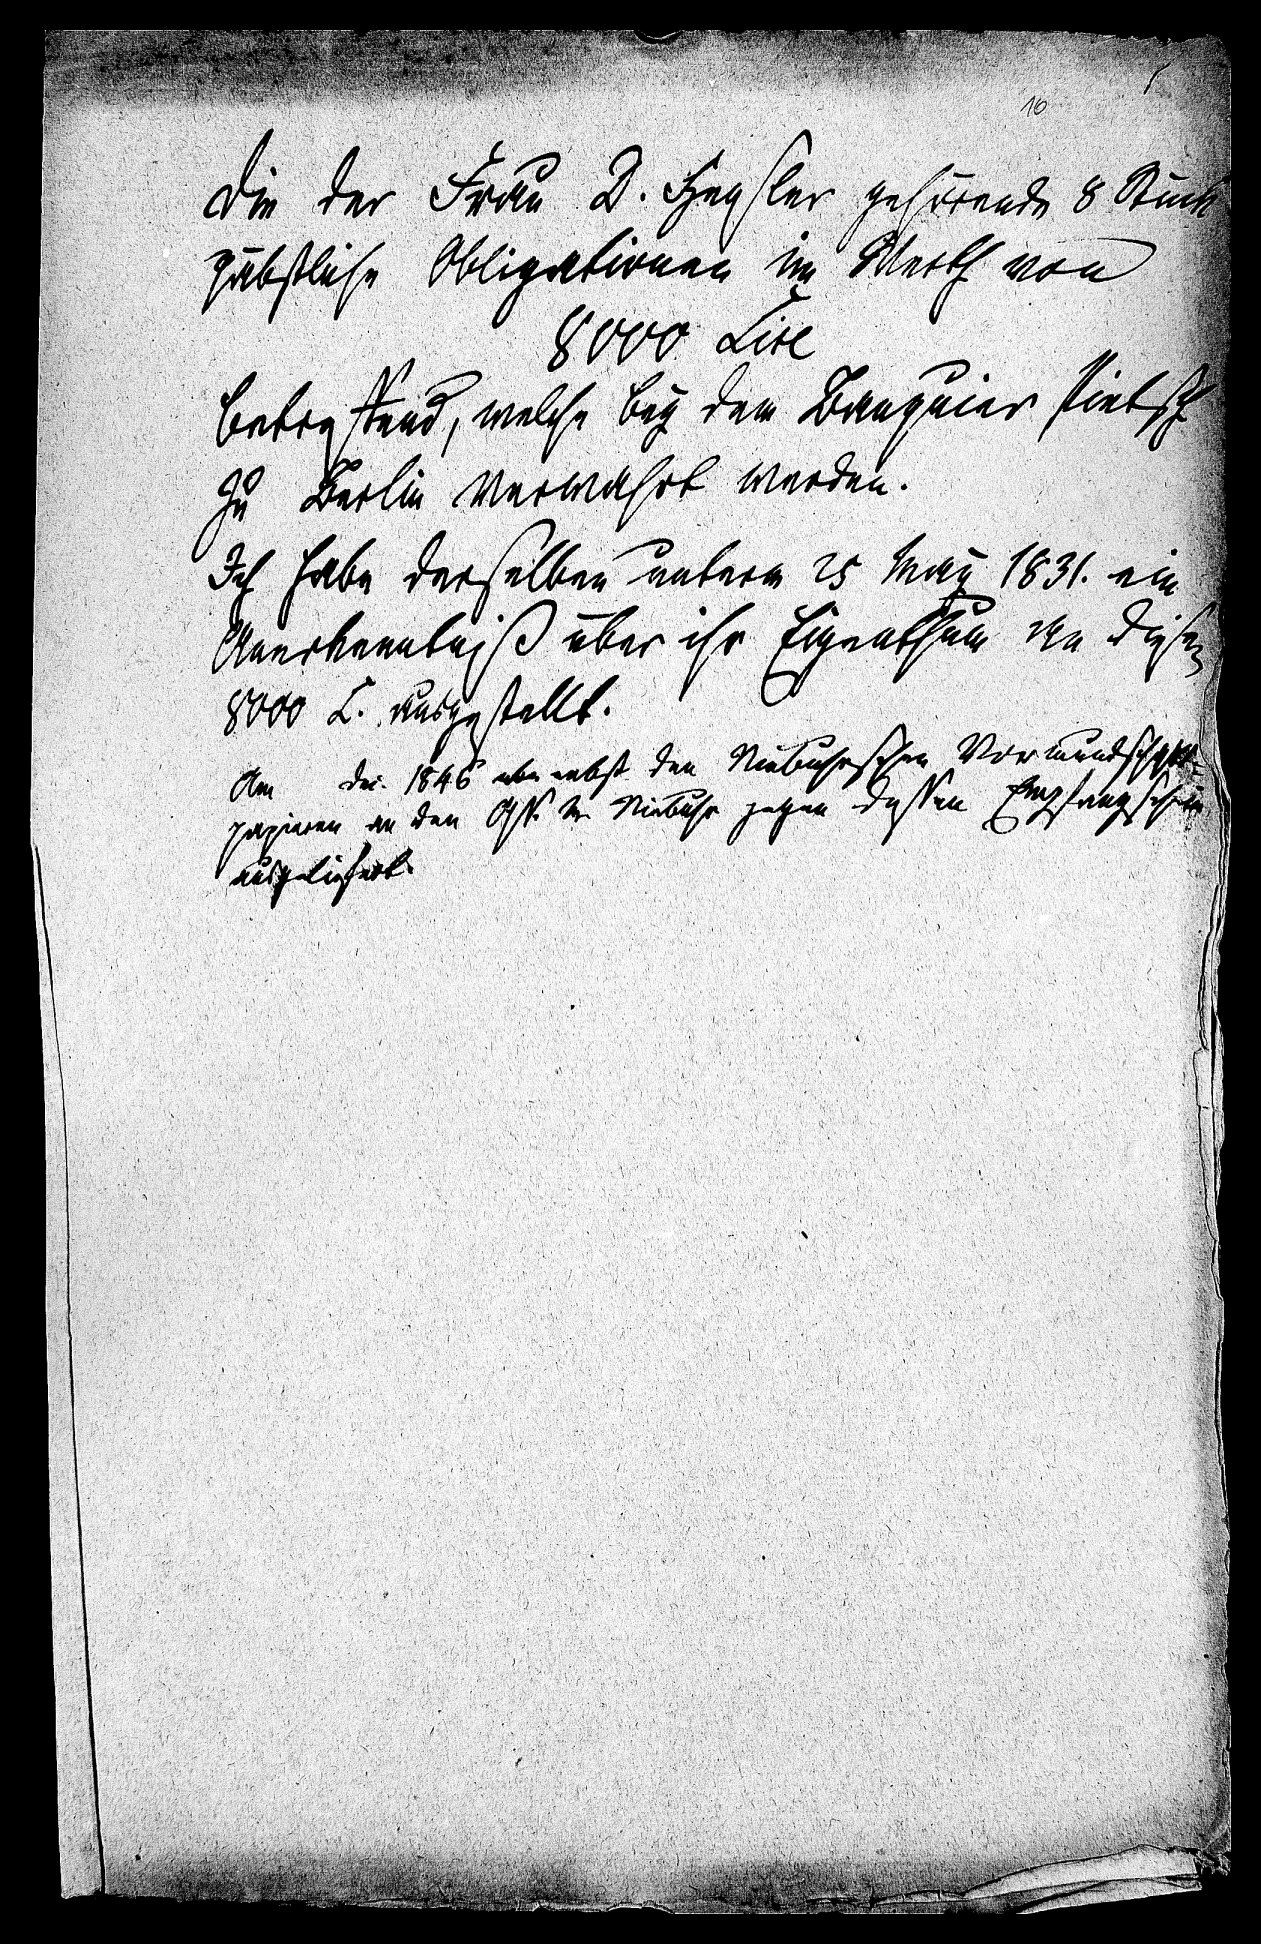 10
Die der Frau D. Hensler gehörende 8 Stück
päbstliche Obligationen im Werth von
8000 Lire
betreffend, welche bey dem Banquier
zu Berlin verwahrt werden.
Ich habe derselben unterm 25 May 1831. ein
Anerkenntniß über ihr Eigenthum an diesen
8000 L. ausgestellt.
Am Dec. 1846 nebst den Niebuhrschen Vormundschafts-
papieren an den Niebuhr gegen dessen Empfangschein
ausgeliefert.